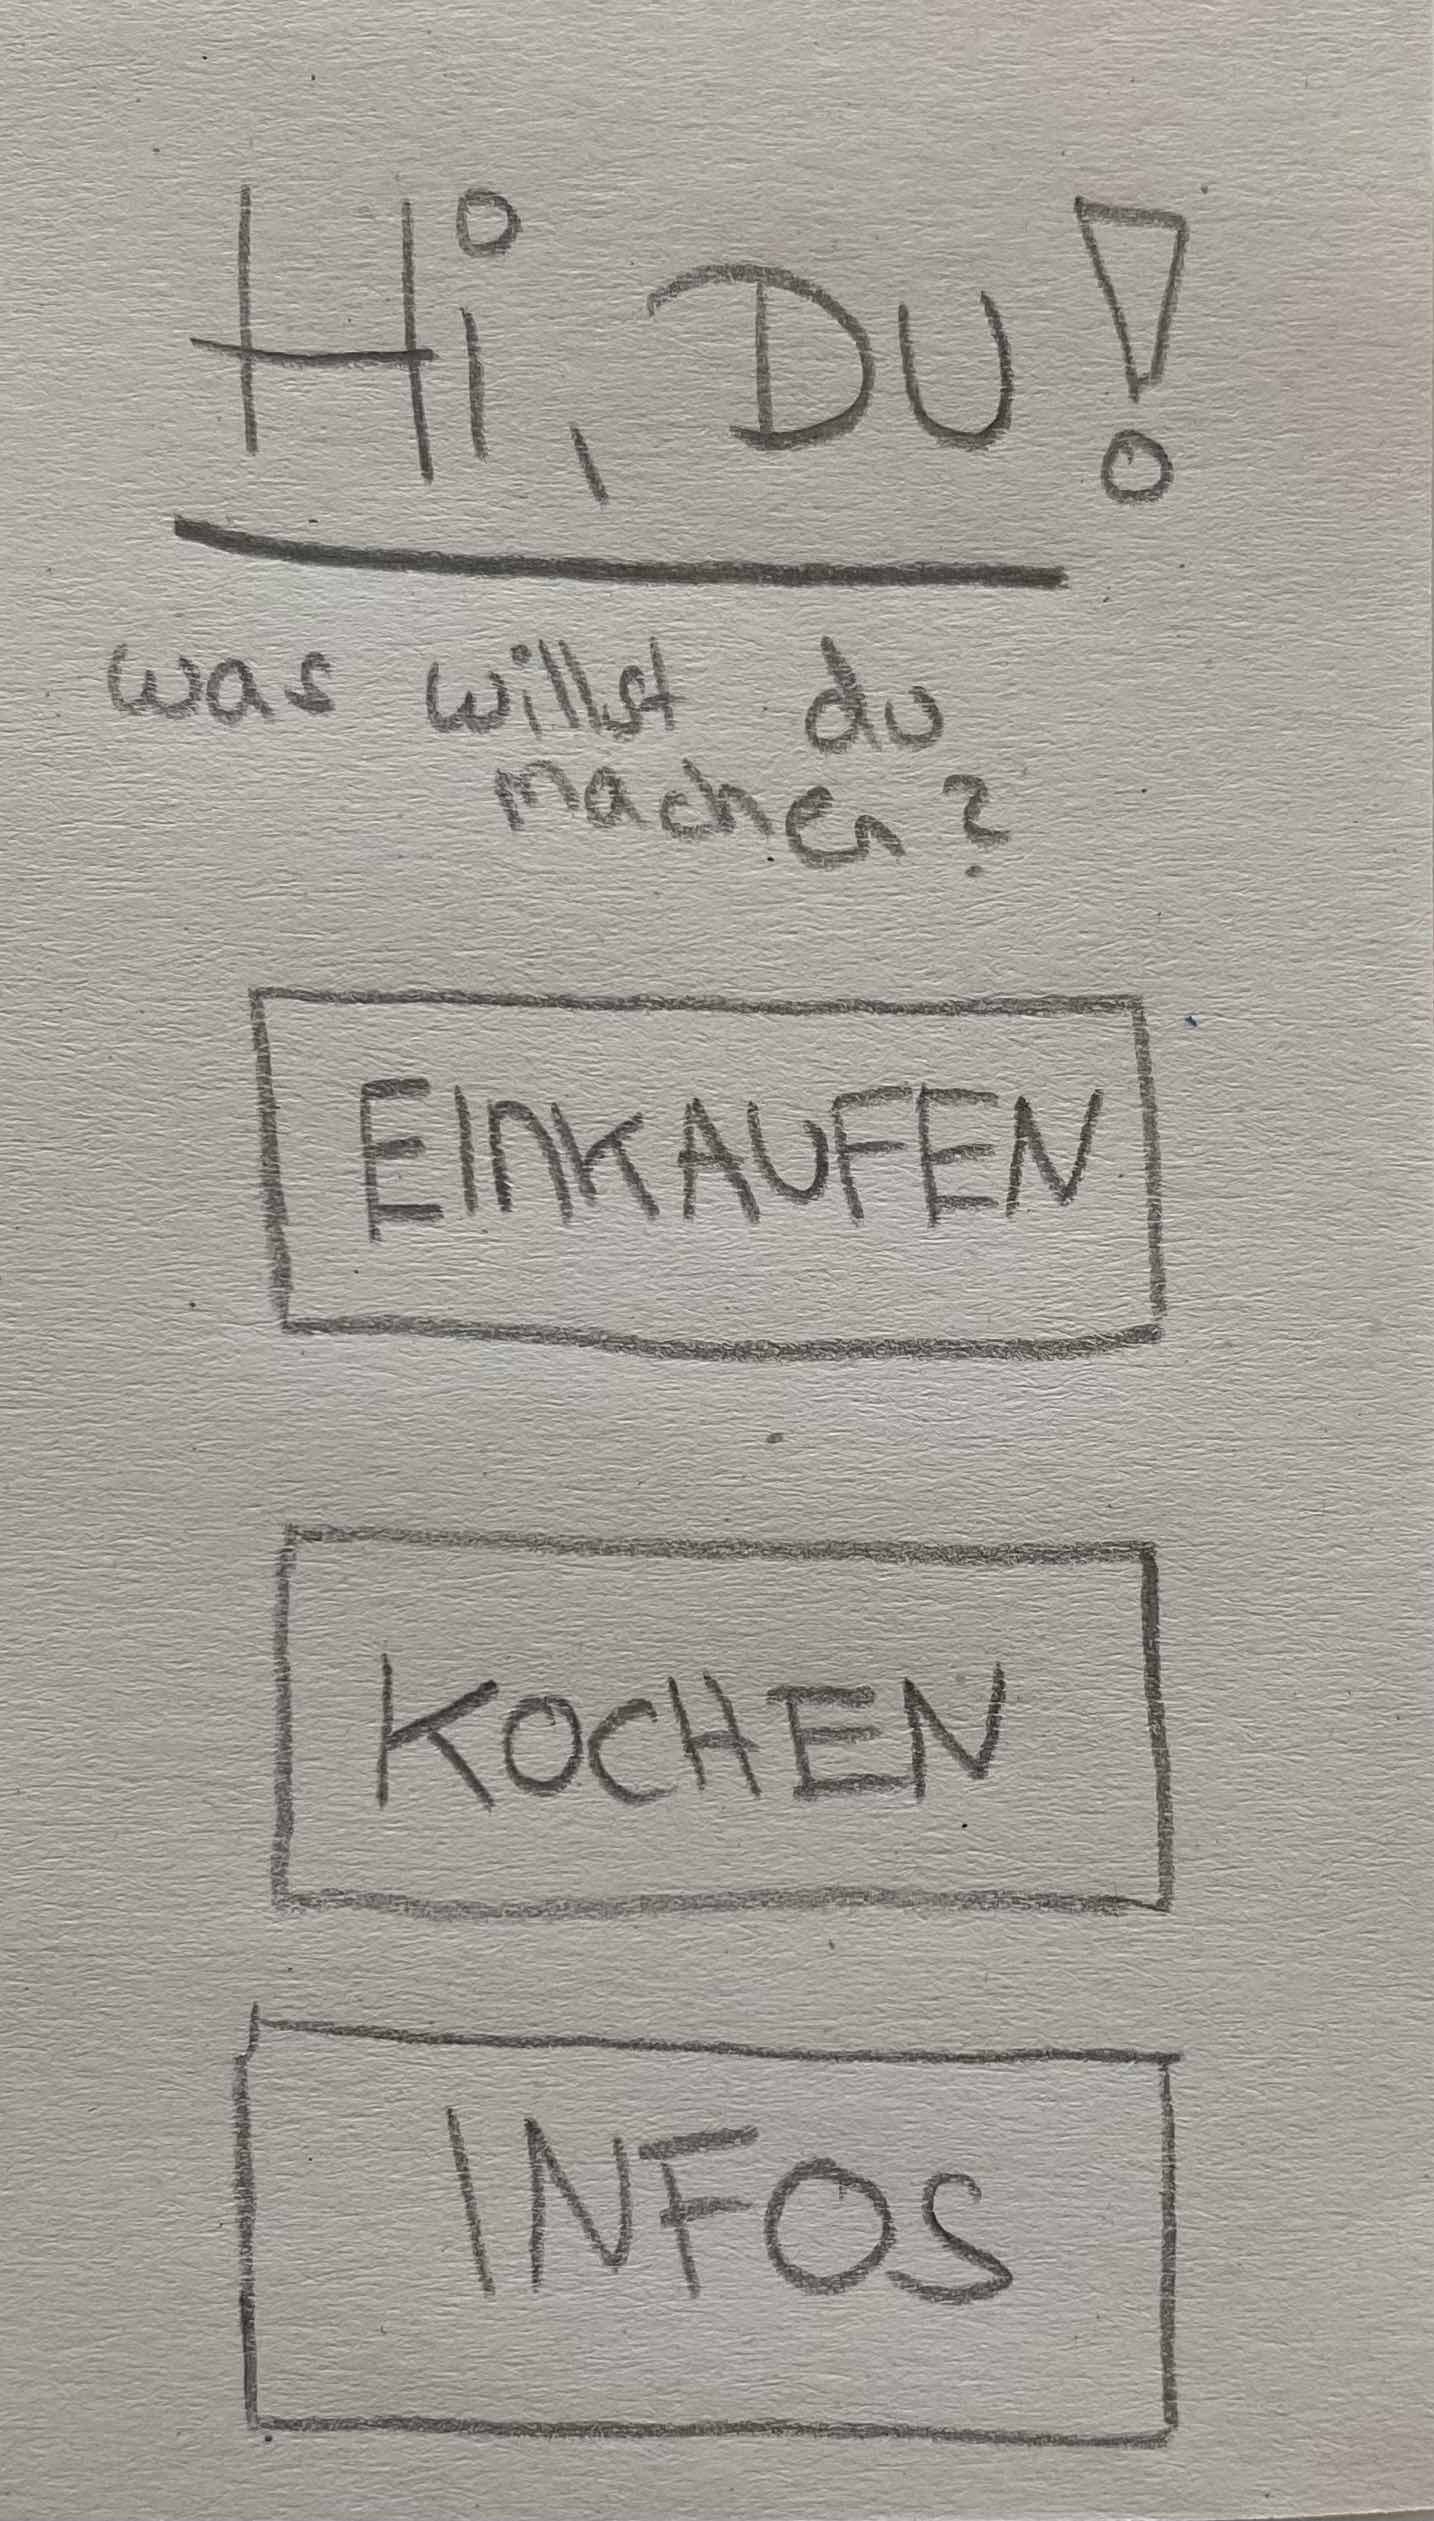 Hi, DU!
was willst du
machen?
EINKAUFEN
KOCHEN
INFOS